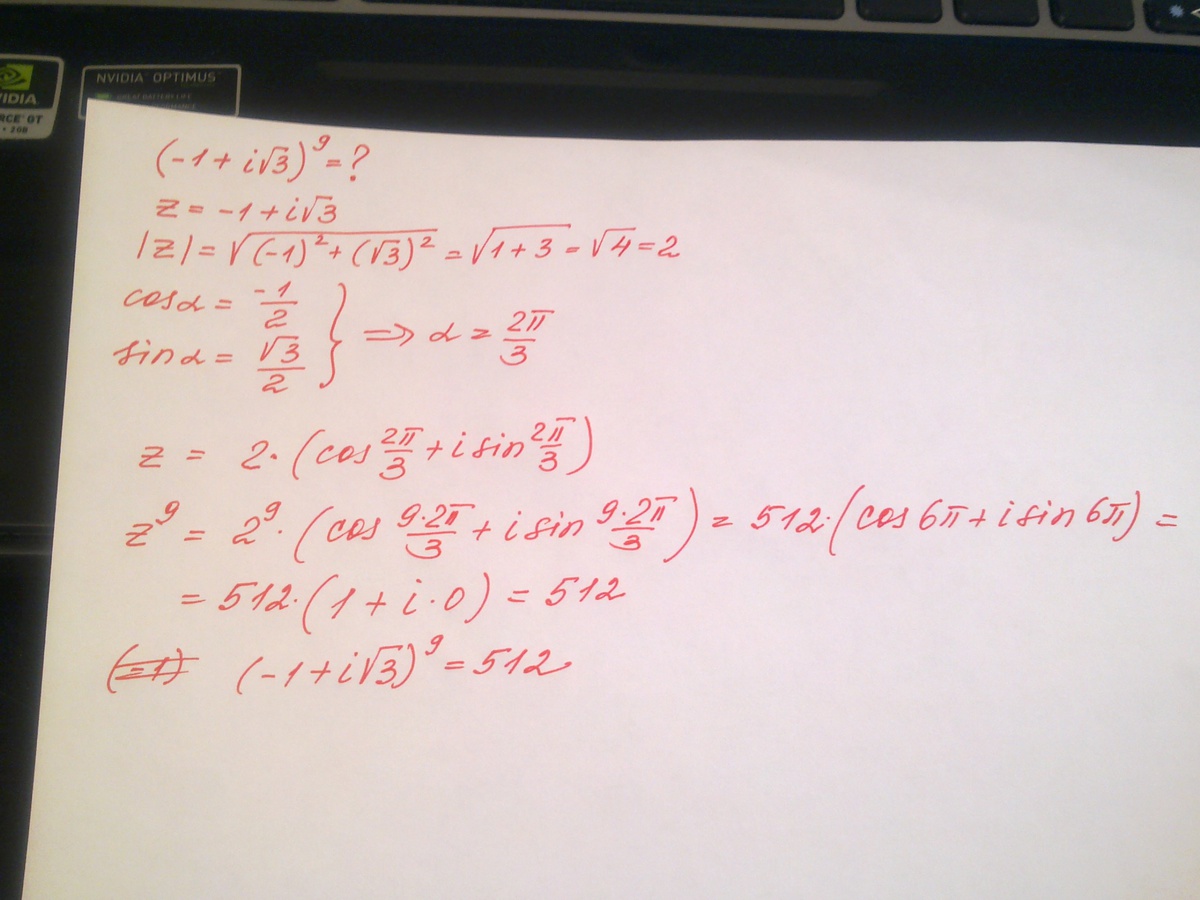 NVIDIA OPTIMUS
VIDIA
RCE GT
• 2GB
(-1 + i√3)⁹ = ?
z = -1 + i√3
|z| = √((-1)² + (√3)²) = √(1 + 3) = √4 = 2
cos α = -1/2
sin α = √3/2 } ⇒ α = 2π/3
z = 2 · (cos 2π/3 + i sin 2π/3)
z⁹ = 2⁹ · (cos 9·2π/3 + i sin 9·2π/3) = 512 · (cos 6π + i sin 6π) =
= 512 · (1 + i · 0) = 512
(-1 + i√3)⁹ = 512